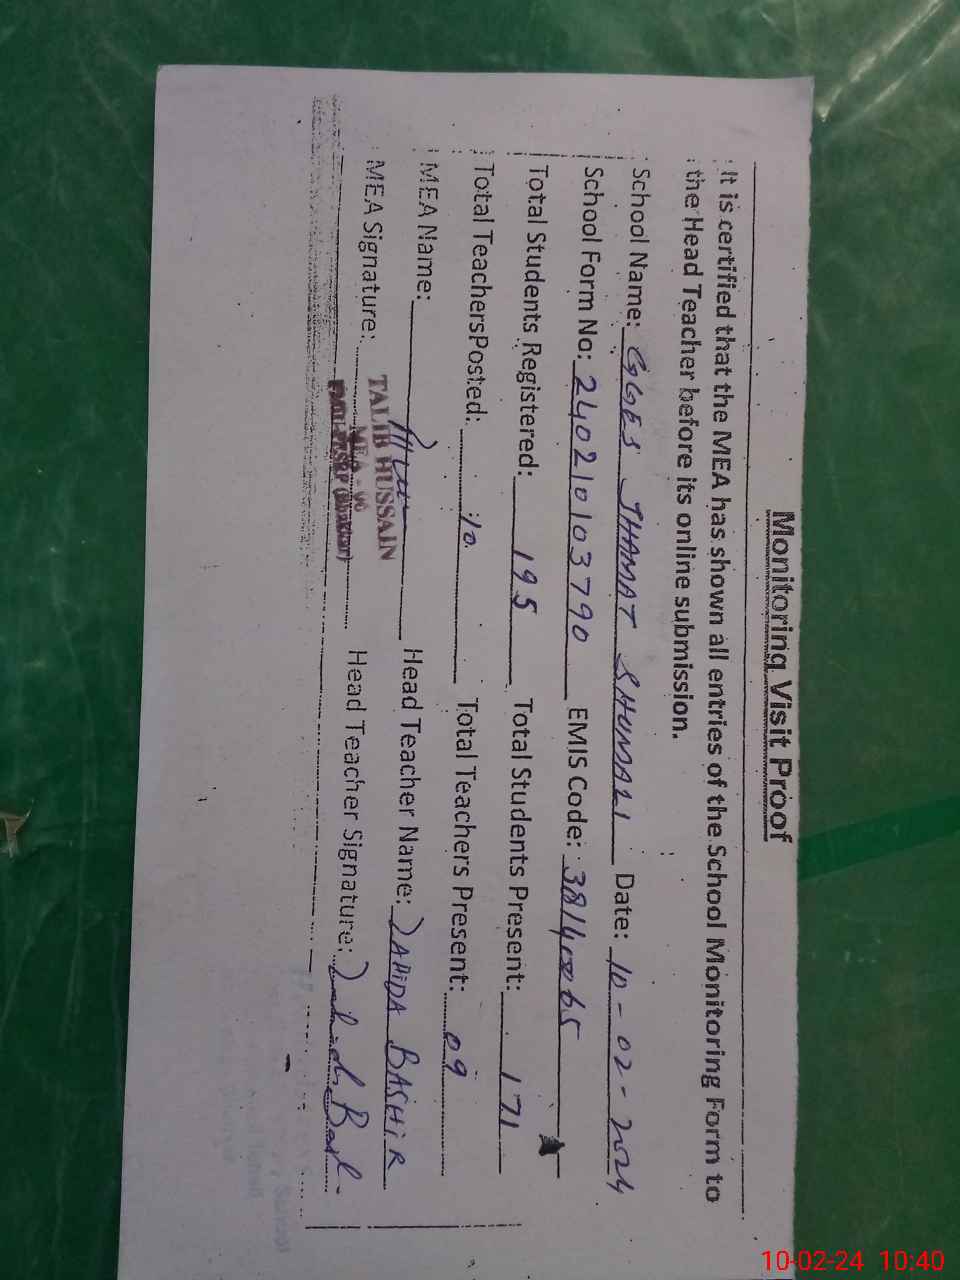 Monitoring Visit Proof
It is certified that the MEA has shown all entries of the School Monitoring Form to
the Head Teacher before its online submission.
School Name: GGES JHAMAT SHUMALI Date: 10-02-2024
School Form No: 240210103790 EMIS Code: 38140065
Total Students Registered: 195 Total Students Present: 171
Total TeachersPosted: 10 Total Teachers Present: 09
MEA Name: Head Teacher Name: ZAHIDA BASHIR
MEA Signature: Head Teacher Signature:
TALIB HUSSAIN
MEA - 96
10-02-24 10:40